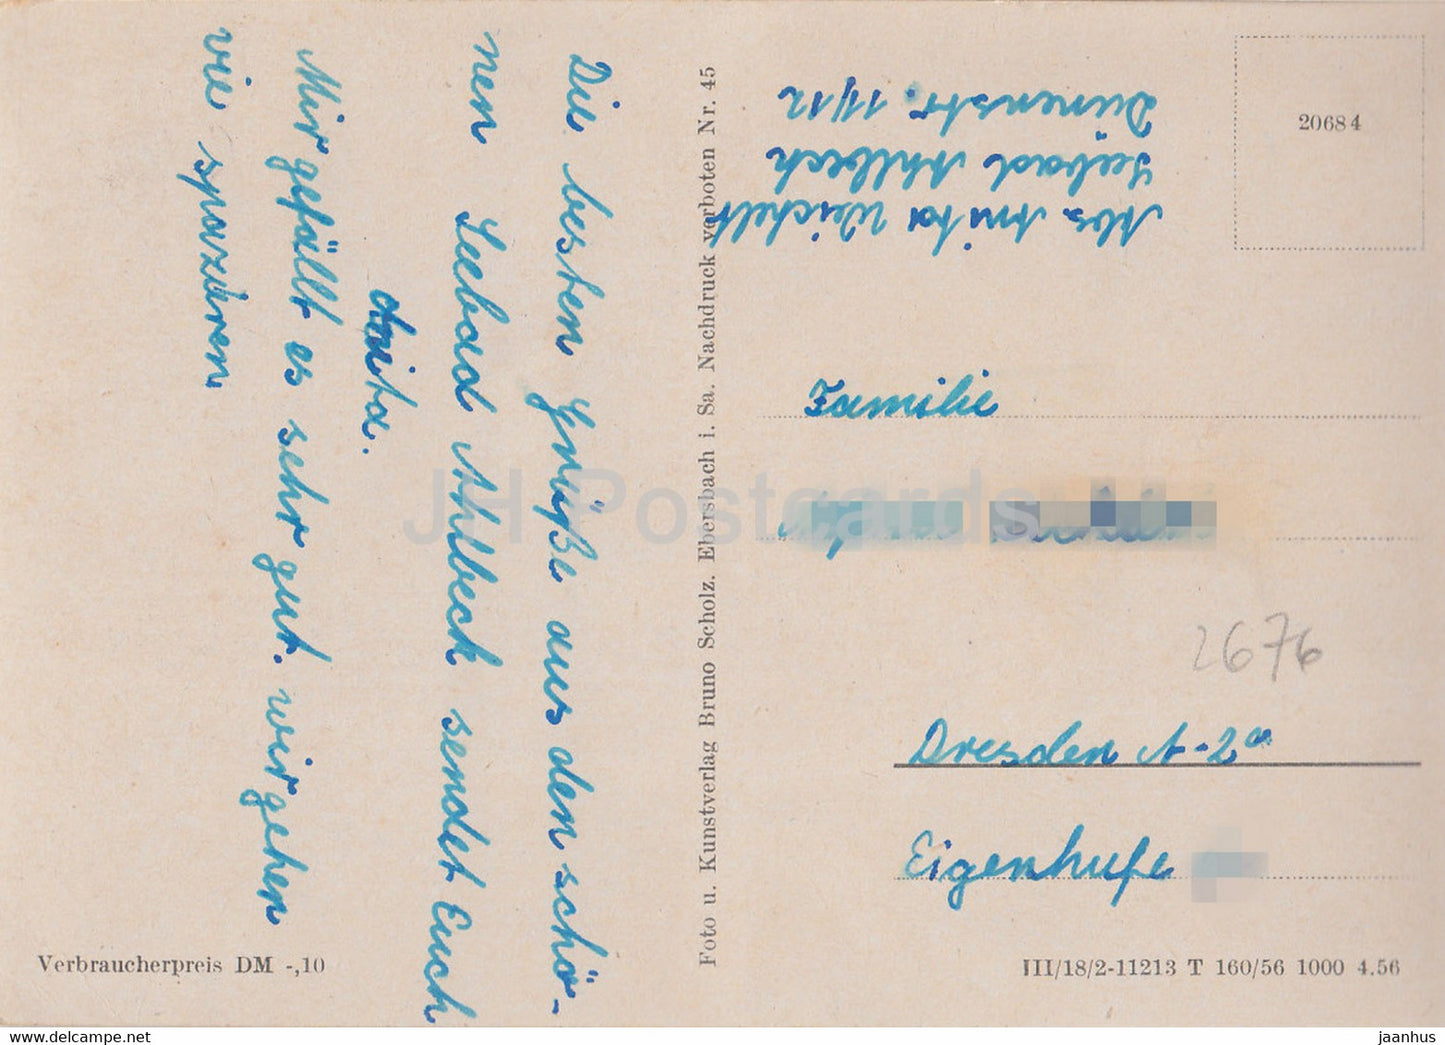 Die besten Grüße aus den schö-
nen Seebad Ahlbeck sendet Euch
Anita.
Mir gefällt es sehr gut. wir gehen
vie spaziren
Foto u. Kunstverlag Bruno Scholz. Ebersbach i. Sa. Nachdruck verboten Nr. 45
Abs Anita Weichelt
Seebad Ahlbeck
Dünenstr. 11/12
20684
Familie
2676
Dresden A-2a
Eigenhufe
Verbraucherpreis DM -,10
III/18/2-11213 T 160/56 1000 4.56
JH Postcards
www.delcampe.net
jaanhus